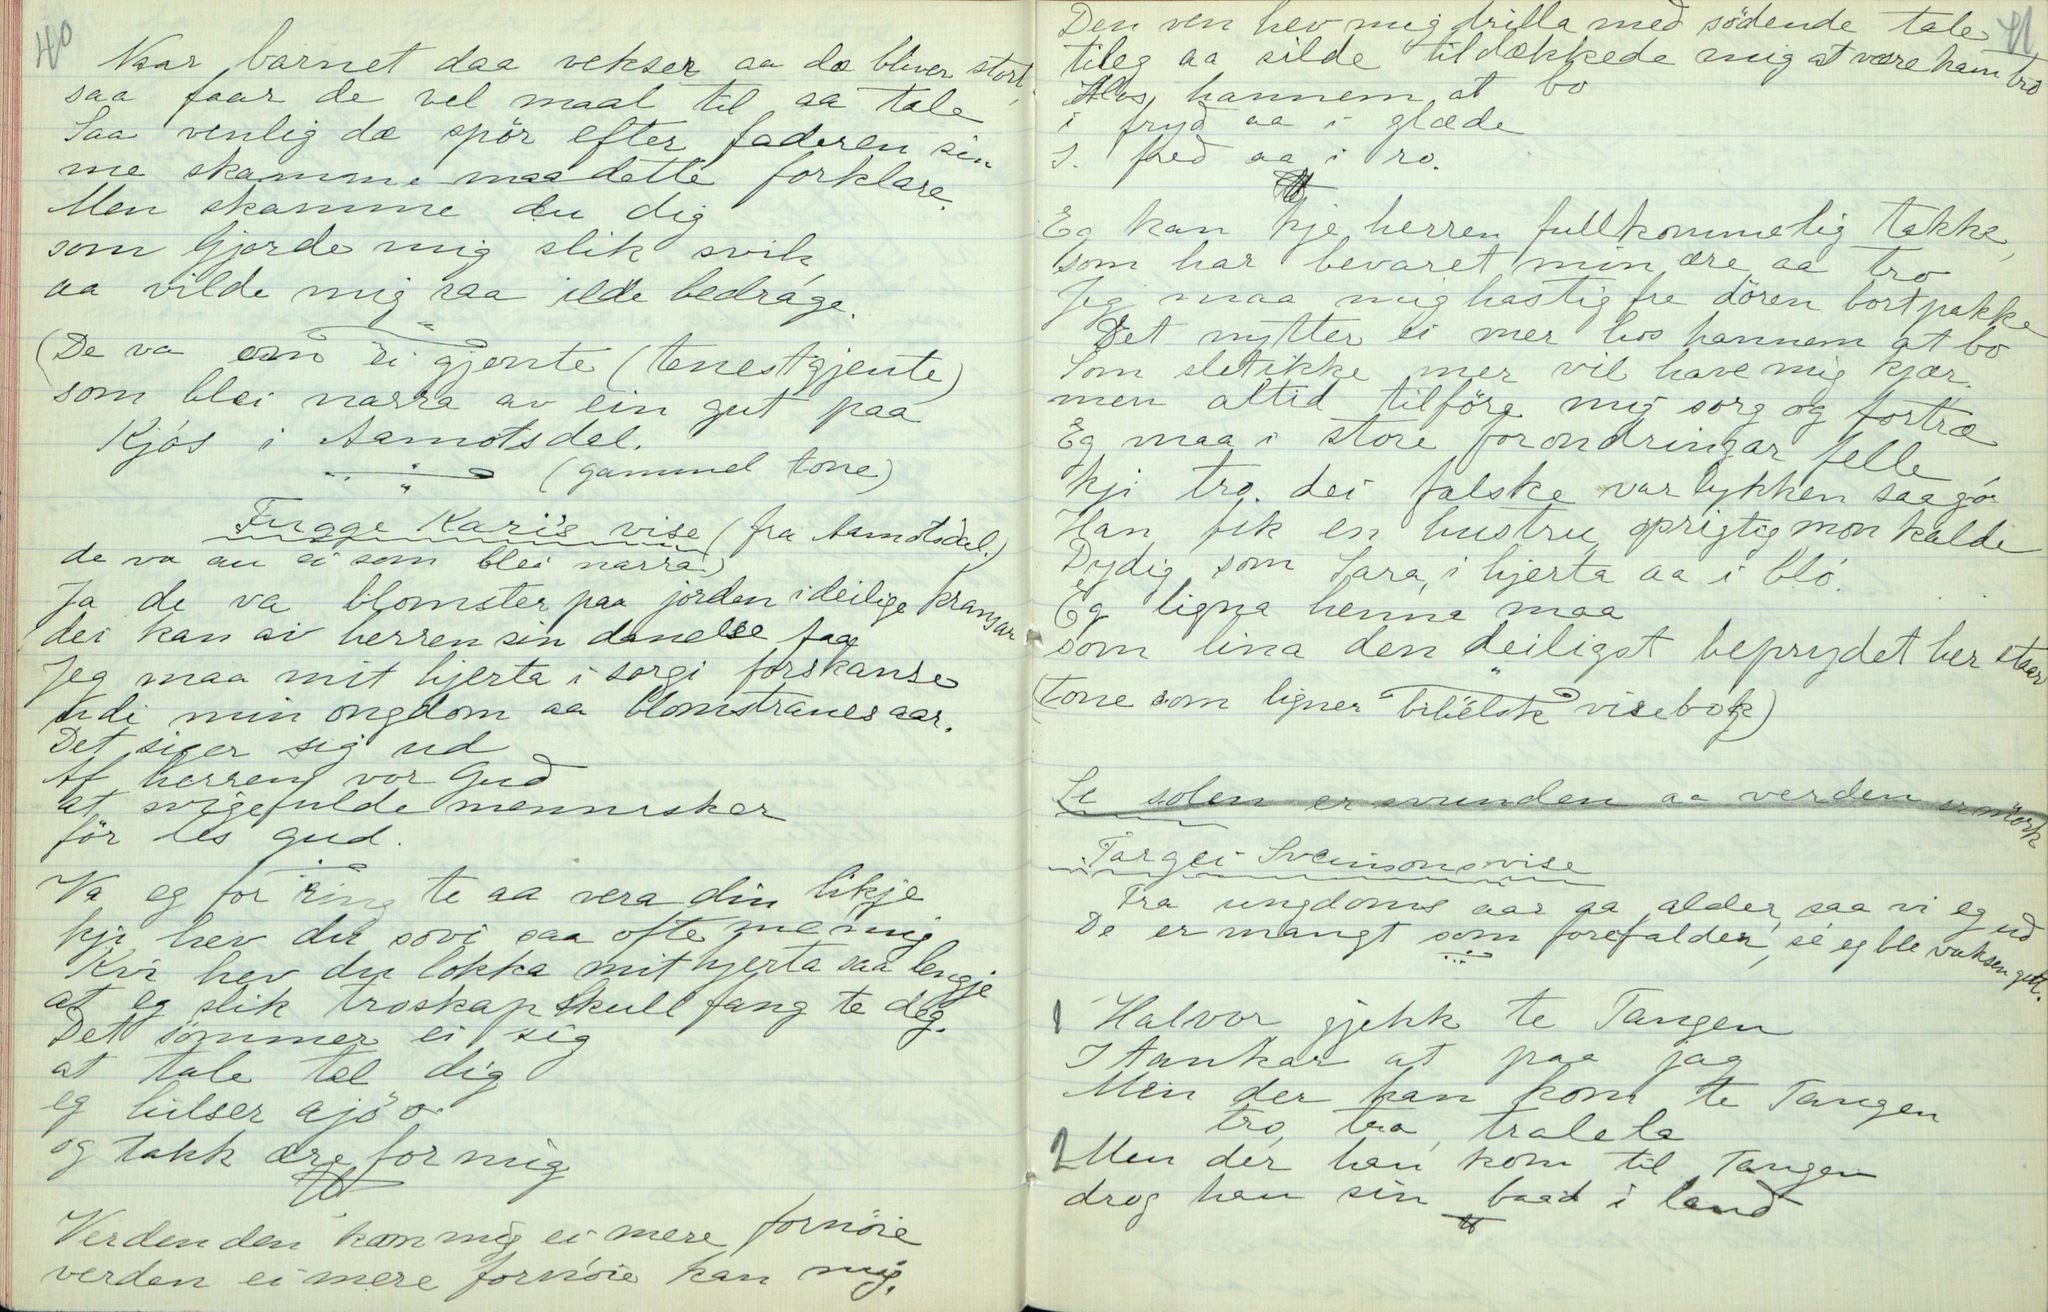 40
Naar barnet daa vekser aa dæ bliver stort,
saa faar de vel maal til aa tale
Saa venlig dæ spör efter faderen sin
me skamme maa dette forklare.
Men skamme du dig
som Gjorde mig slik svik
aa vilde mig saa ilde bedråge.
(De va ei gjente (tenestgjente)
som blei narra av ein gut paa
Kjós i Aamotsdal.
(gammel tone)
Fugge Karis vise (fra Aamotsdal.)
de va au ei som blei narra)
Ja de va blomster paa jorden i deilige kransar
dei kan av herren sin danelse faa
Jeg maa mit hjerta i sorgi forskanse
udi min ongdom aa blomstranes aar.
Det siger sig ud
Af herren vor Gud
at svigefulde mennesker
för les gud.
Va eg for ring te aa vera din likje
kji hev du sovi saa ofte mé mig
Kvi hev du lokka mit hjerta saa lengje
at eg slik troskap skull fang te deg.
Det sömmer ei sig
at tale tel dig
eg hilser ajö
og takk ære for mig
Verden den kan mig ei mere fornöie
verden ei mere fornöie kan mig.
41
Den ven hev mig drilla med södende tale
tileg aa silde tildækkede mig at være ham tro
Hos hannem at bo
i fryd aa i glæde
I fred aa i ro.
Eg kan kje herren fullkommelig takke,
som har bevaret min ære aa tro
Jeg maa mig hastig fre dören bortpakke
Det nytter ei mer hos hannem at bo
Som sletikke mer vil have mig kjær.
men altid tilföre mig sorg og fortræ
Eg maa i store forondringar felle
kji tro dei falske var lykken saa gó
Han fik en hustru oprigtig mon kalde
Dydig som Sara i hjerta aa i bló.
Eg ligna henne maa
som lina den deiligst beprydet her staar
(tone som ligner bibelsk visebok)
Se solen er svunden aa verden er mörk
Targei Sveinsons vise
Fra ungdoms aar aa alder, saa vi eg ud
De er mangt som forefalder, sé eg ble vaksen gut.
1 Halvor gjekk te Tangen
I tankar at paa jag
Men der han kom te Tangen
tro, tra, tralala
2 Men der han kom til Tangen
drog han sin baad i land